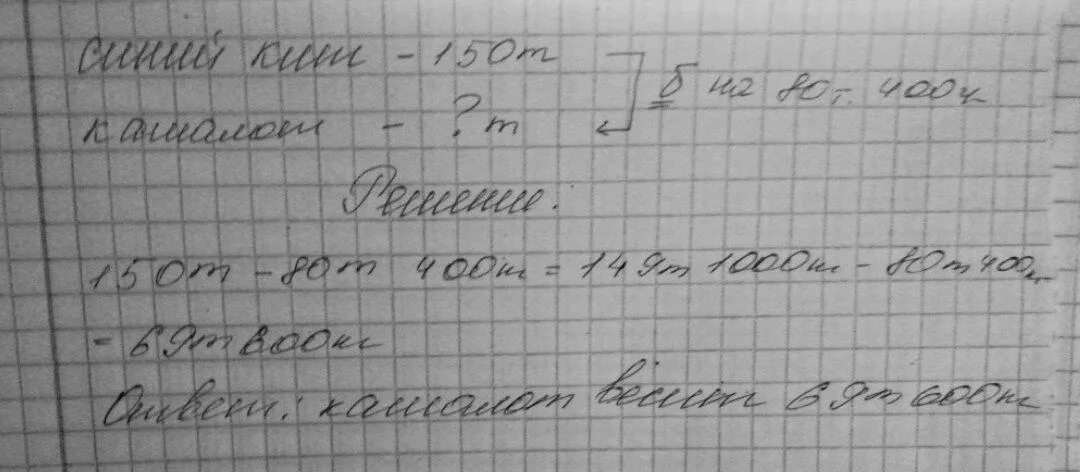 синий кит - 150т
б на 80т. 400к
кашалот - ? т
Решение.
150т - 80т 400кг = 149т 1000кг - 80т 400кг
= 69т 600кг
Ответ: кашалот весит 69т 600кг